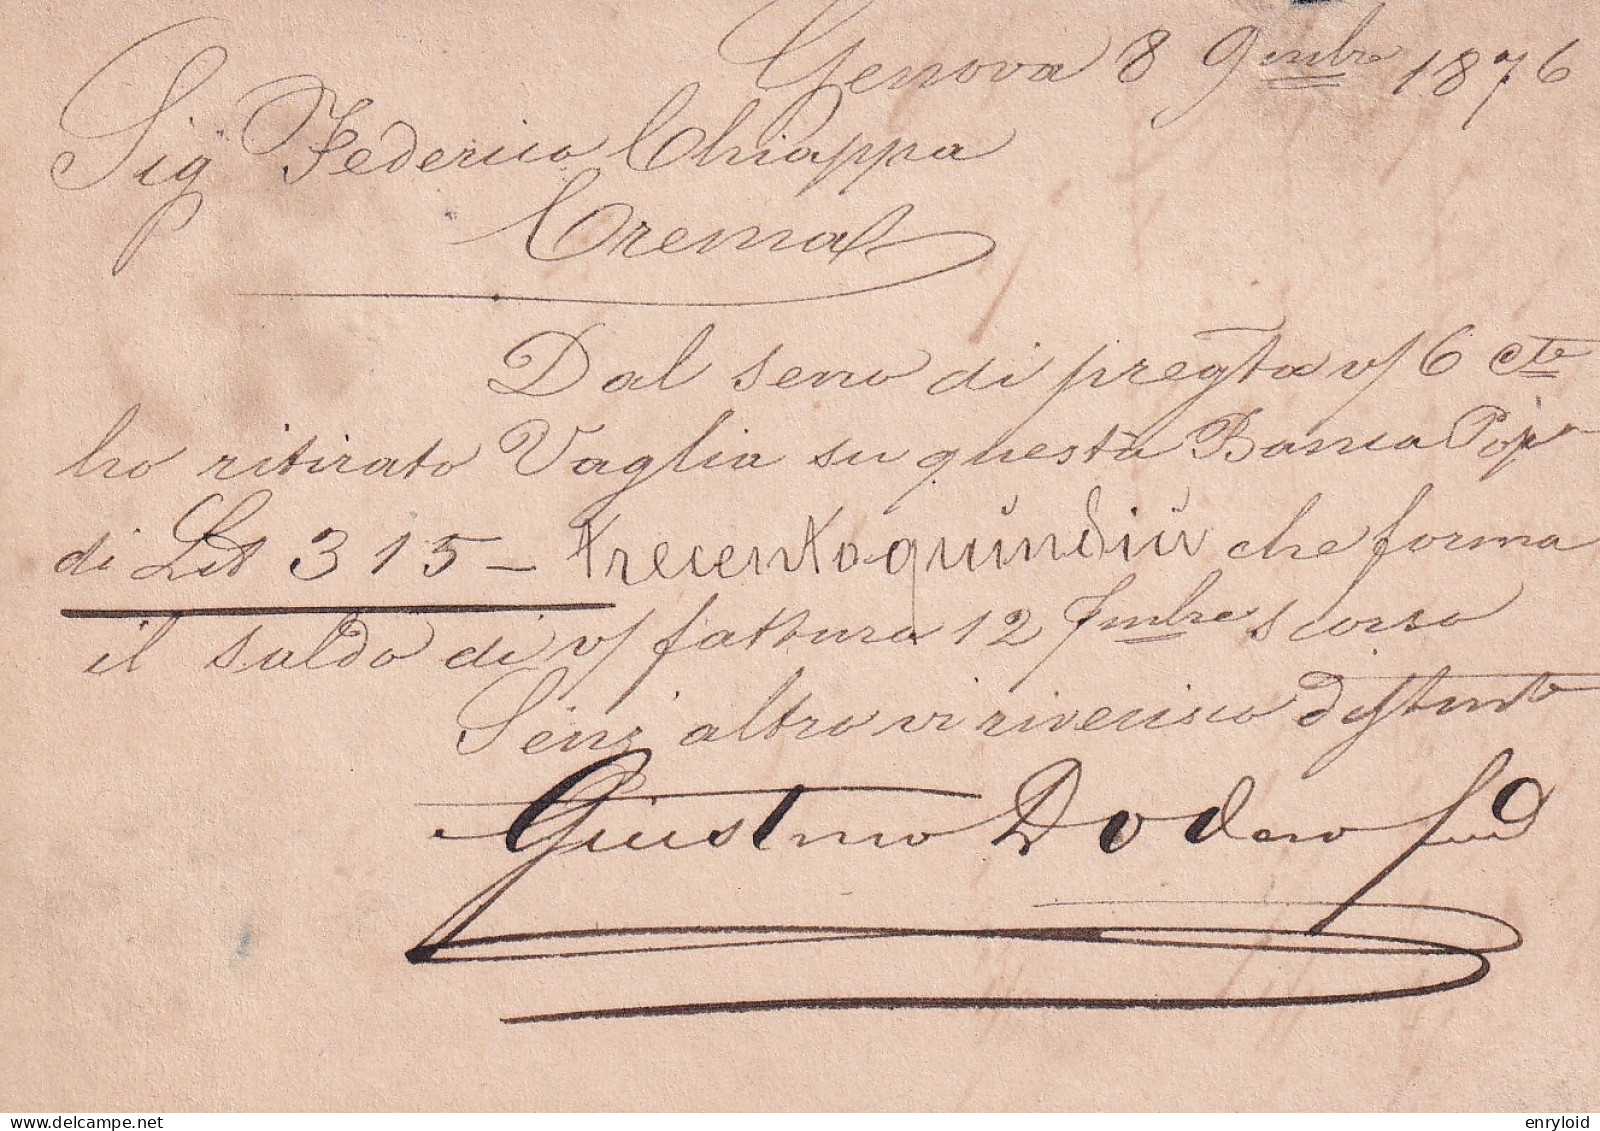 Genova 8 9mbre 1876
Sig Federico Chiappa
Crema
Dal seno di pregta v/ 6 cte
ho ritirato Vaglia su questa Banca Popre
di Lit 315 – trecentoquindici che forma
il saldo di v/ fattura 12 7mbre scorso
Senz' altro vi riverisco distinte
Giustino Dodero
enryloid